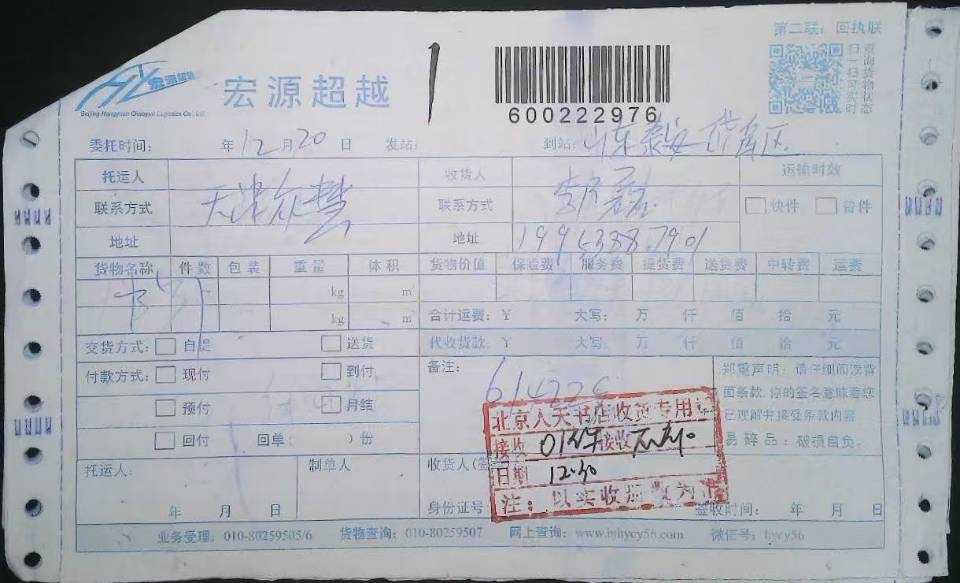 第二联：回执联
宏源超越
Beijing Hongyuan Chaoyue Logistics Co., Ltd
600222976
扫一扫可实时
查询货物状态
委托时间： 年12月20日 发站： 到站：山东泰安
托运人 收货人 运输时效
联系方式 天津 联系方式 快件 普件
地址 地址 19953887901
货物名称 件数 包装 重量 体积 货物价值 保险费 服务费 提货费 送货费 中转费 运费
书 1 kg m³
kg m³ 合计运费：¥ 大写： 万 仟 佰 拾 元
交货方式： 自提 送货 代收货款：¥ 大写： 万 仟 佰 拾 元
付款方式： 现付 到付 备注： 郑重声明：请仔细阅读背
面条款，你的签名意味着您
预付 月结 已理解并接受条款内容
回付 回单： ）份 易碎品：破损自负。
北京人天书店收货专用章
接收 接收
日期 12.20
注：以实收 数为
托运人： 制单人 收货人（签
年 月 日 身份证号 签收时间： 年 月 日
业务受理：010-80259505/6 货物查询：010-80259507 网上查询：www.bjhycy56.com 微信号：hycy56